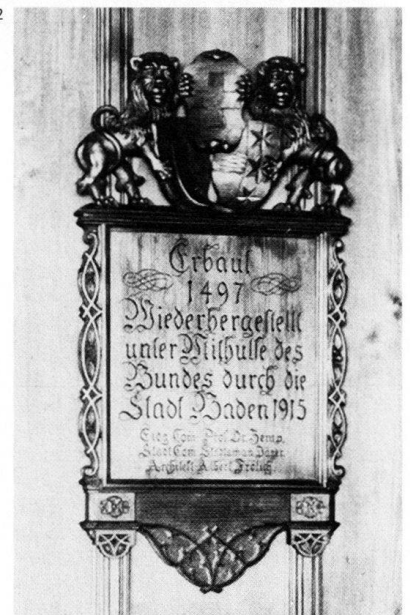 2
Erbaut
1497
Wiederhergestellt
unter Mithülfe des
Bundes durch die
Stadt Baden 1915
Eidg. Com. Prof. Dr. Zemp.
Stadt Com. Stadtaman Jäger
Architekt Albert Frölich.